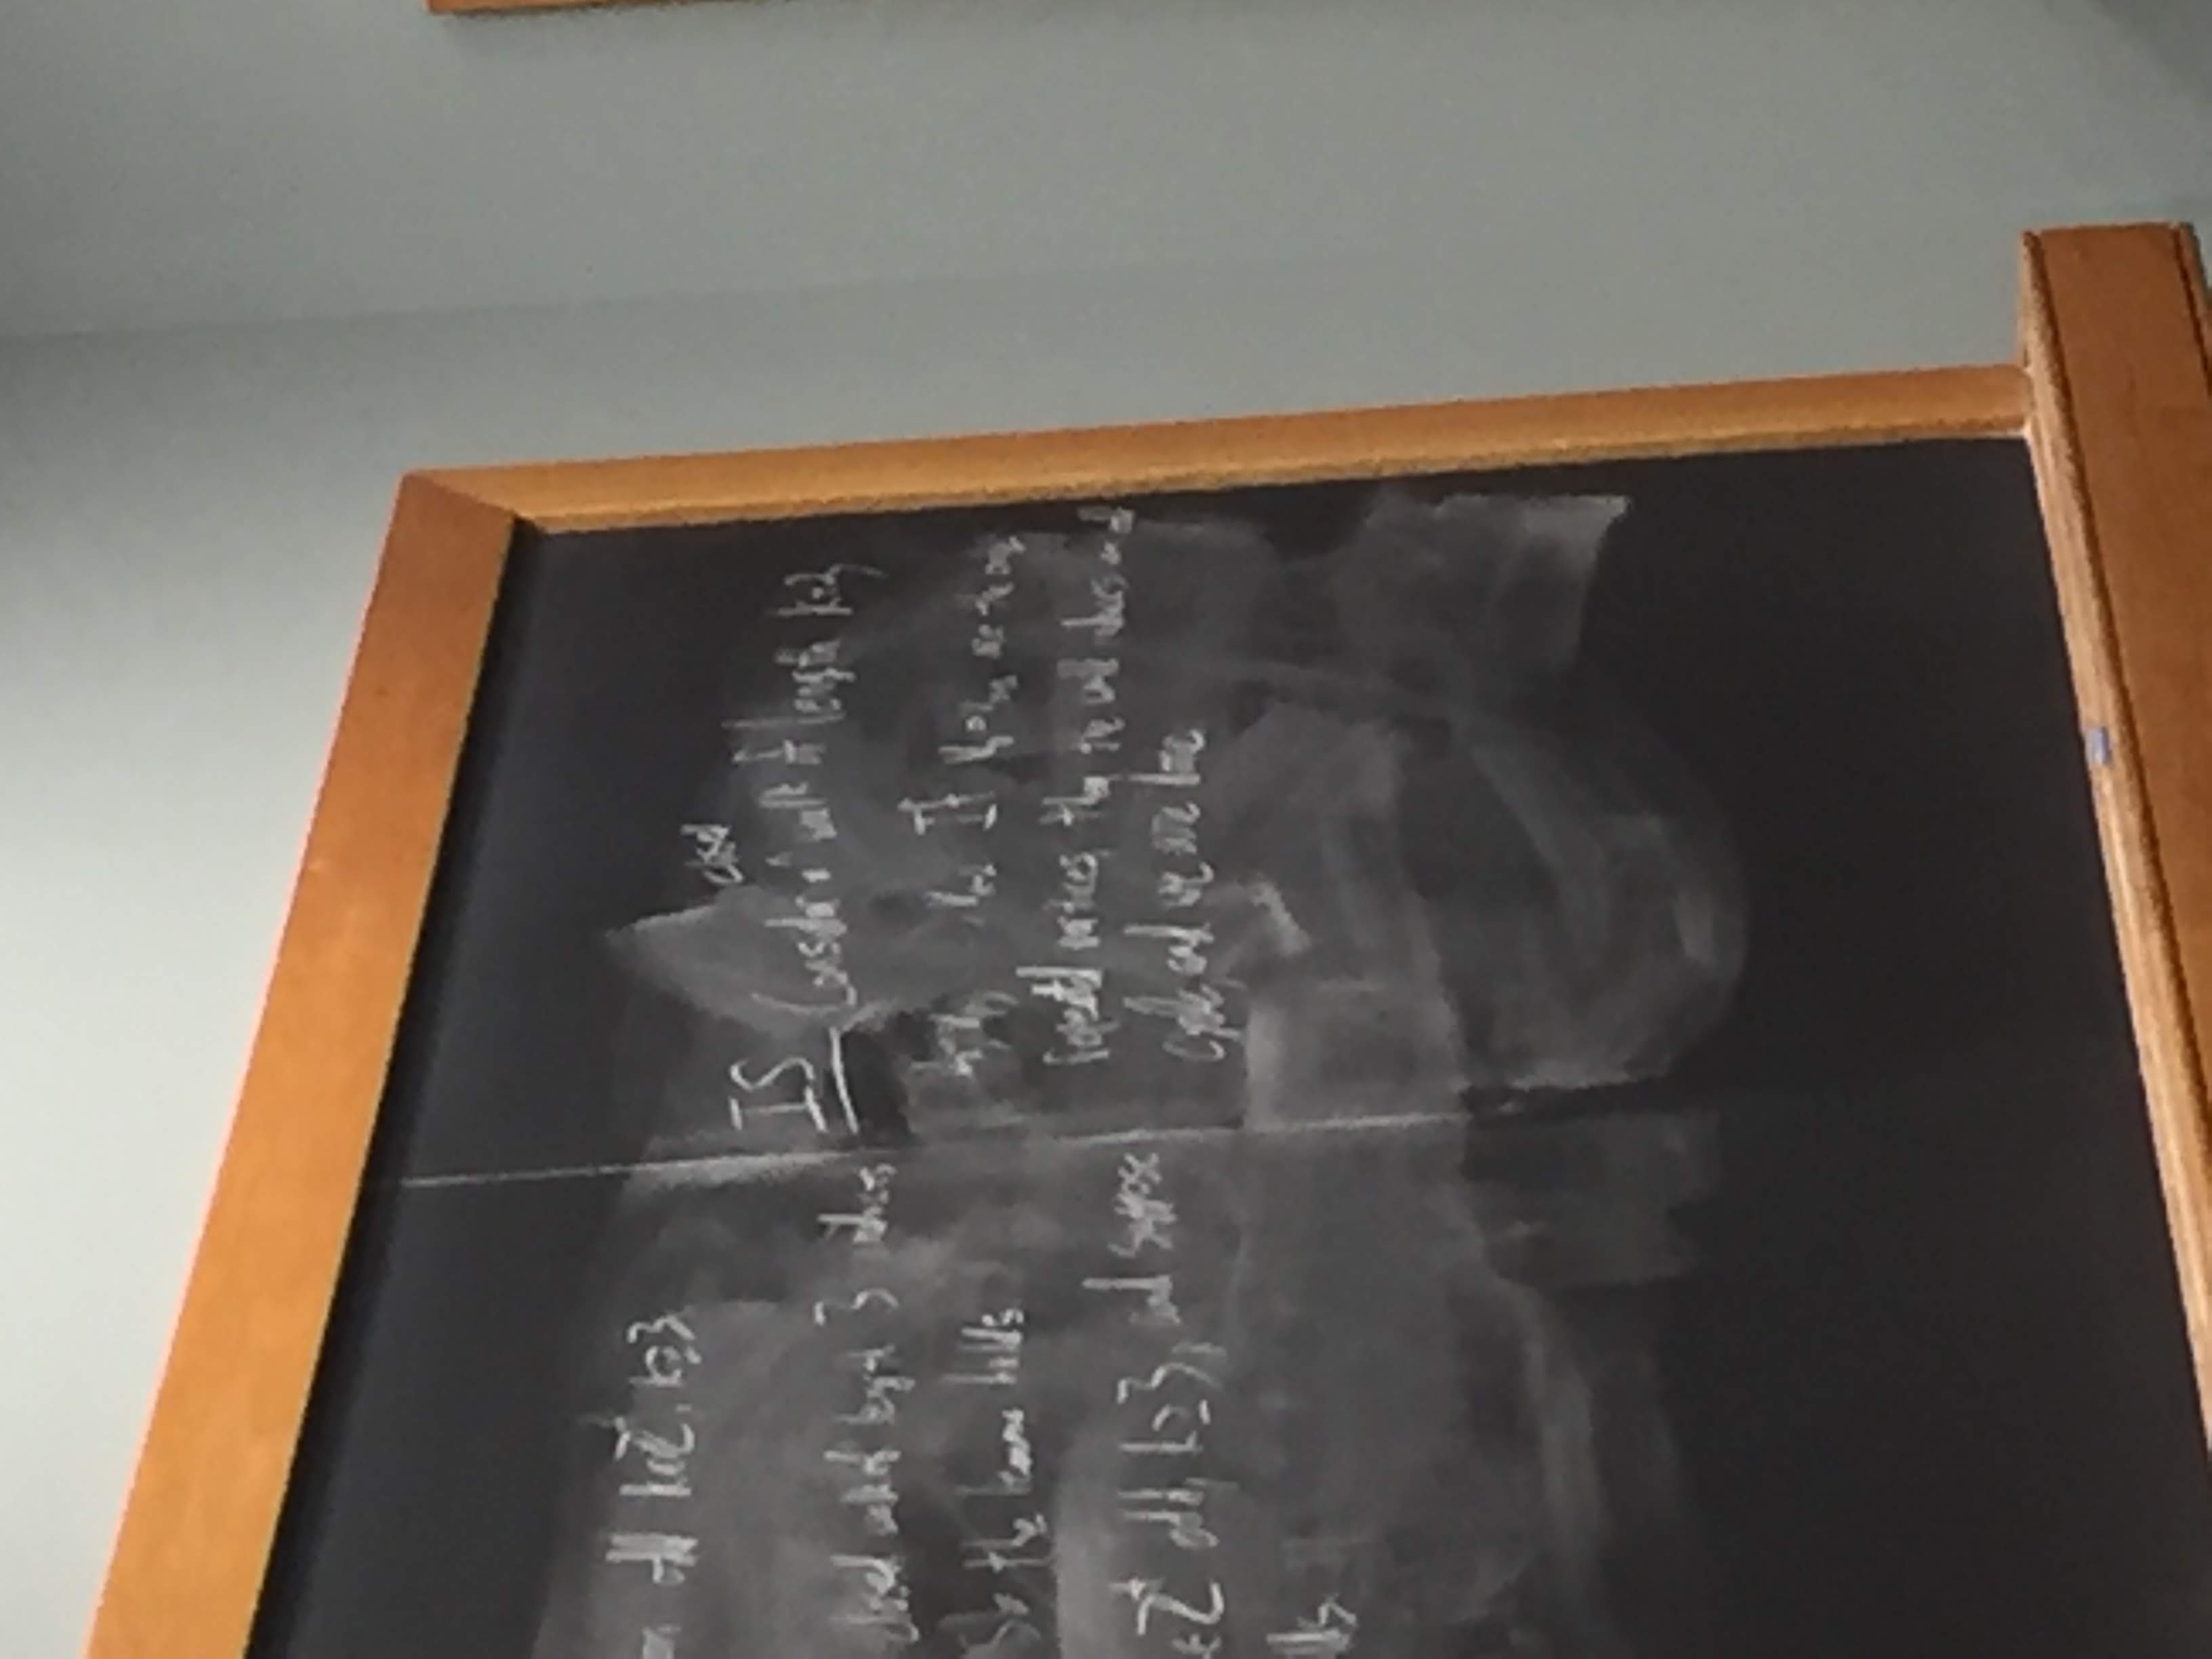 odd k∈Z⁺, k≥3
closed walk of length 3
So the lemma holds
∈Z⁺ odd, k≥3, and suppose
IS Consider a closed walk of length k+2,
If are the only
repeated vertices, then the walk induces an odd
cycle, and we are done